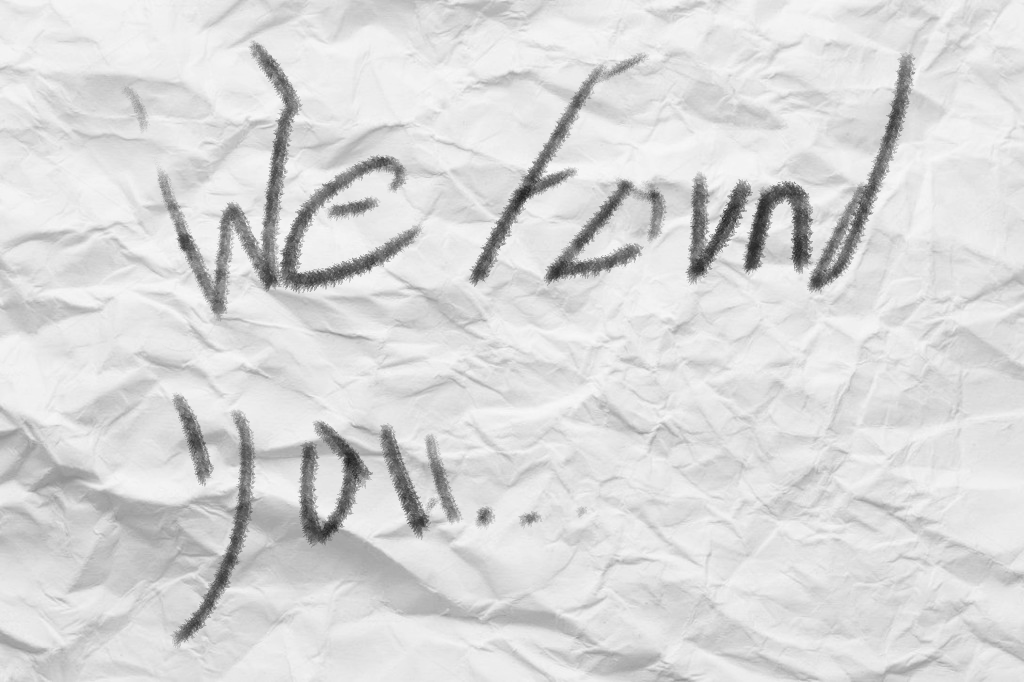 We found
you...